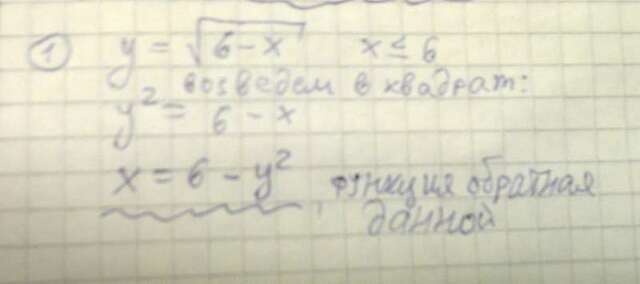 ① y = √6-x x ≤ 6
возведем в квадрат:
y² = 6 - x
x = 6 - y², функция обратная
данной